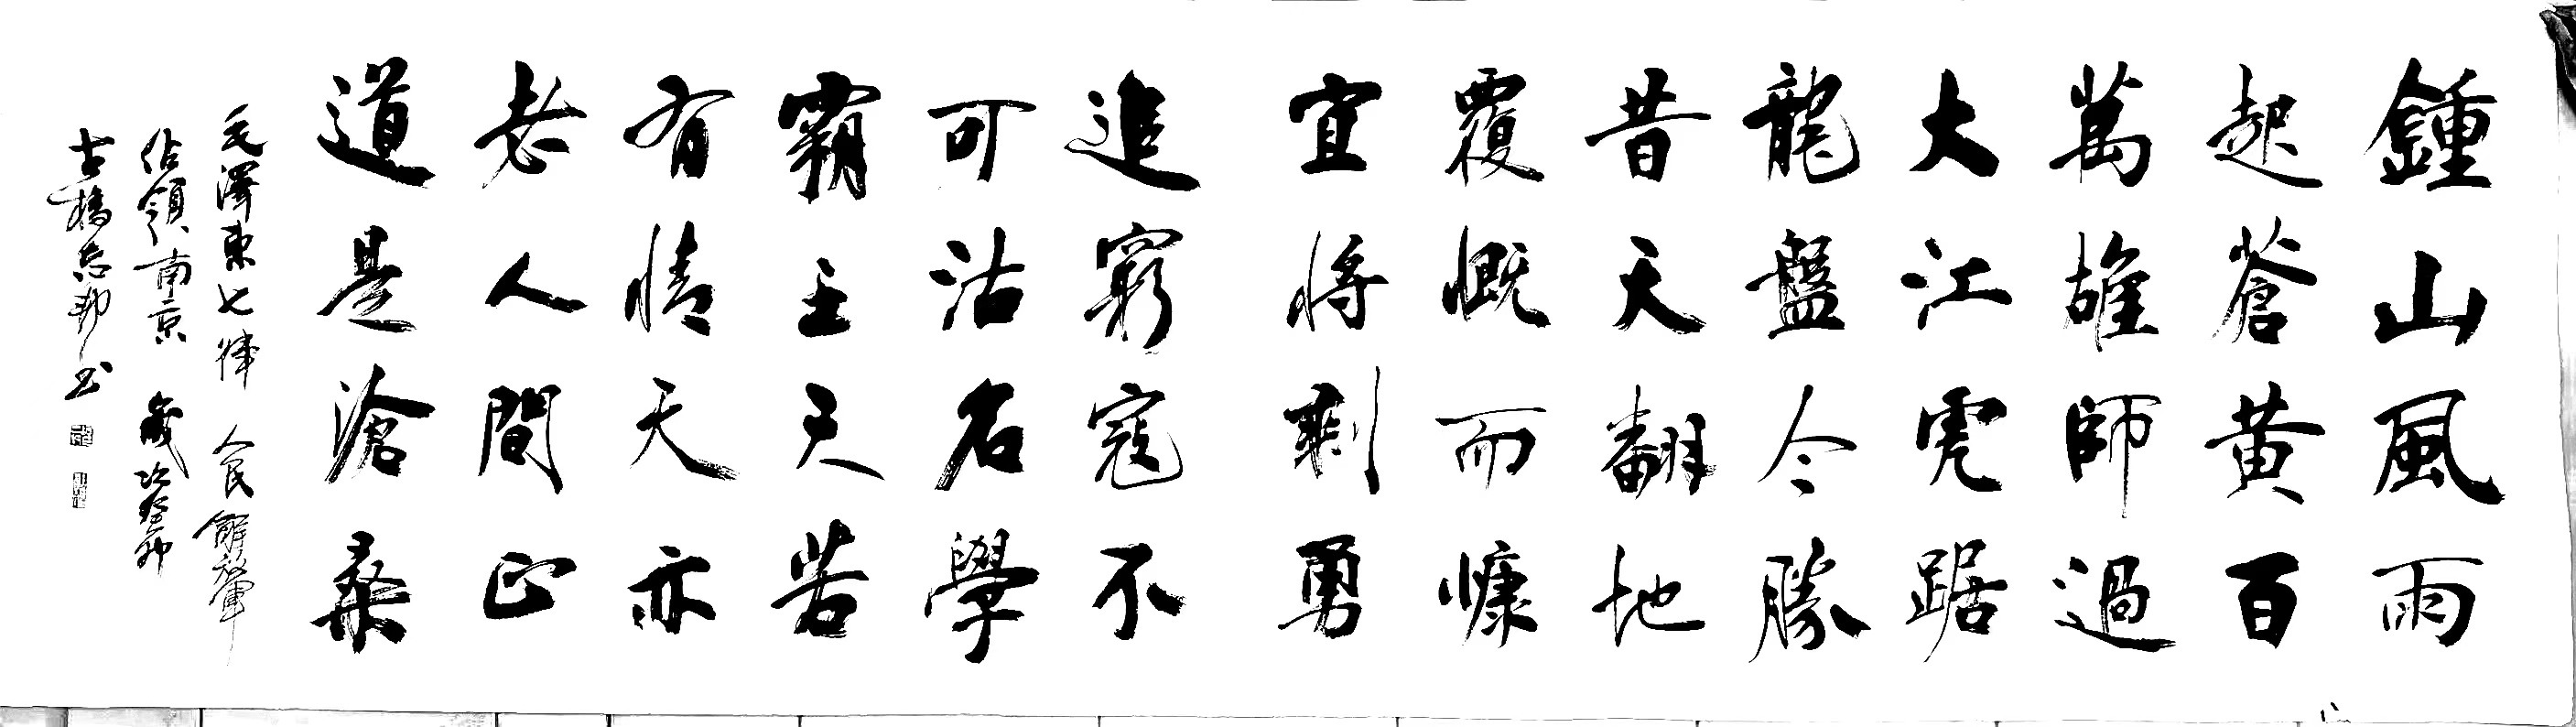 鍾山風雨
起蒼黃百
萬雄師過
大江虎踞
龍盤今勝
昔天翻地
覆慨而慷
宜將剩勇
追窮寇不
可沽名學
霸王天若
有情天亦
老人間正
道是滄桑
毛澤東七律 人民解放軍
佔領南京 歲次癸卯
古橋志